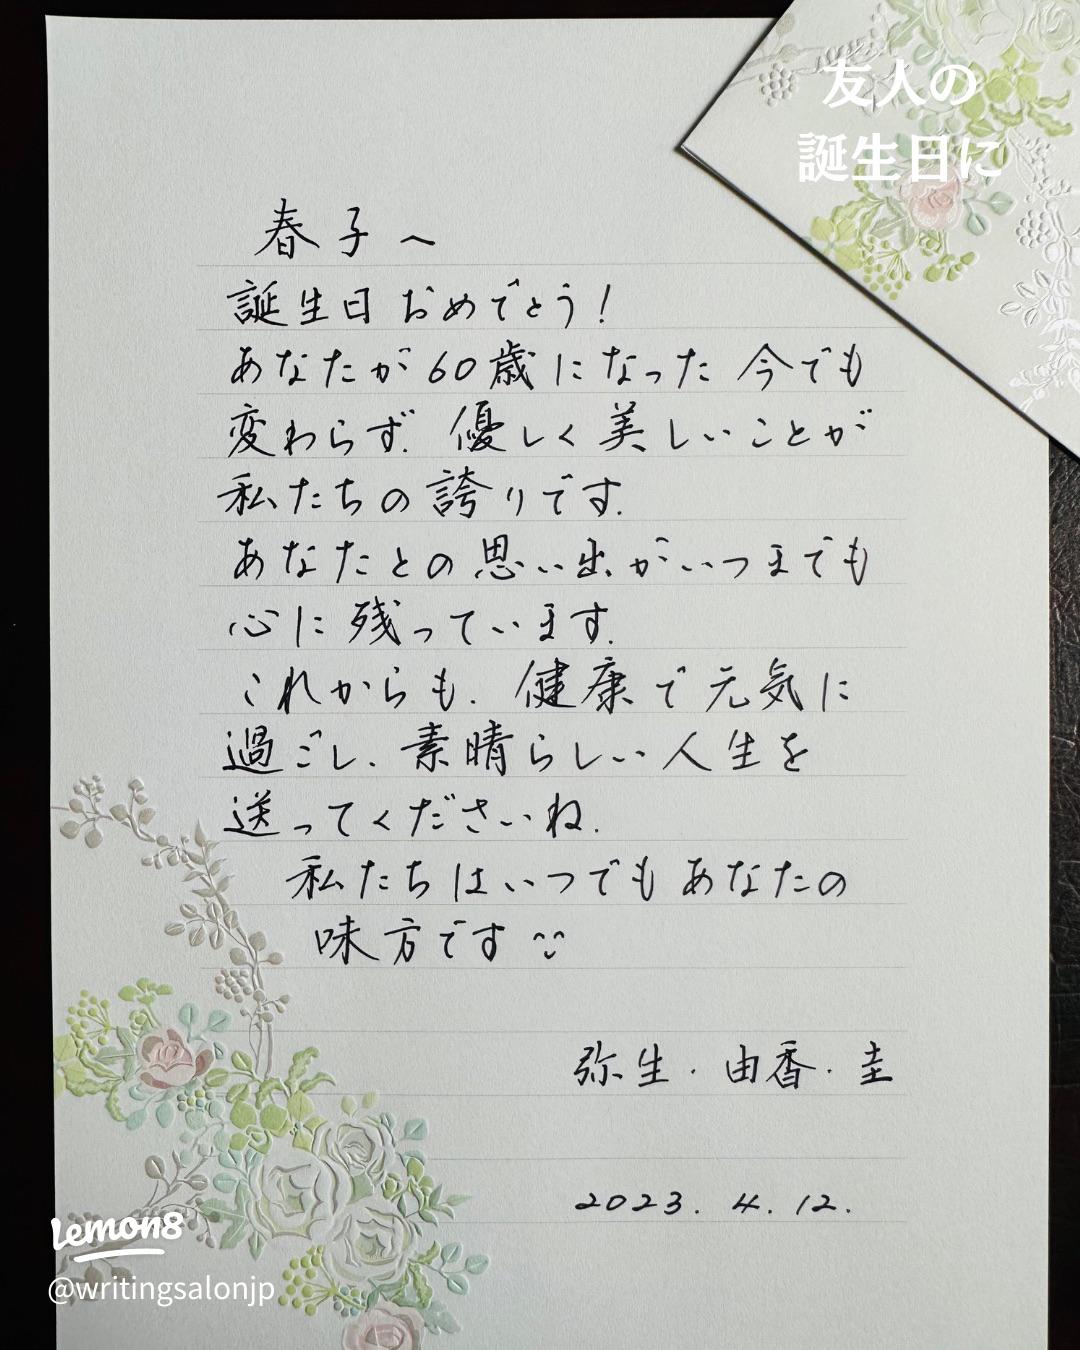 友人の
誕生日に
春子へ
誕生日おめでとう!
あなたが60歳になった今でも
変わらず、優しく美しいことが
私たちの誇りです。
あなたとの思い出がいつまでも
心に残っています。
これからも、健康で元気に
過ごし、素晴らしい人生を
送ってくださいね。
私たちはいつでもあなたの
味方です
弥生・由香・圭
2023. 4. 12.
Lemon8
@writingsalonjp